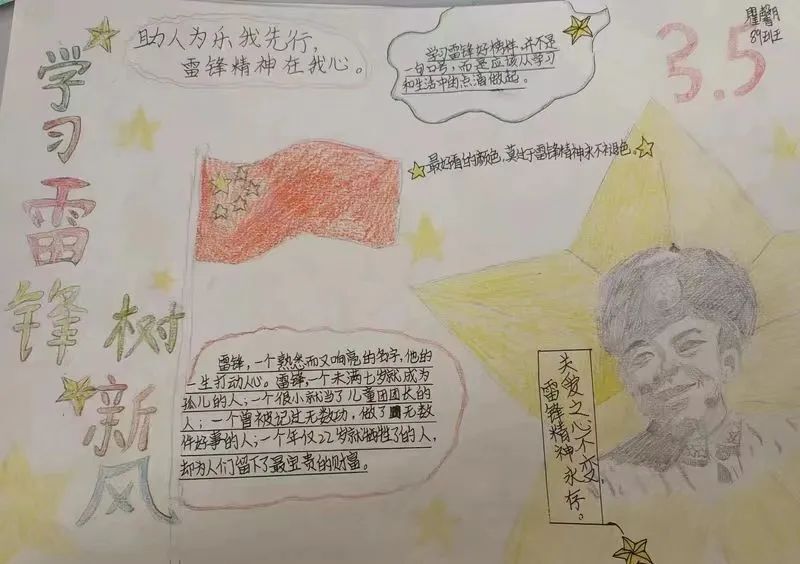 学习雷锋
树新风
助人为乐我先行，
雷锋精神在我心。
学习雷锋好榜样，并不是
一句口号，而是应该从学习
和生活中的点滴做起。
3.5
89班
最好看的颜色，莫过于雷锋精神永不褪色。
雷锋，一个熟悉而又响亮的名字，他的
一生打动人心。雷锋，一个未满七岁就成为
孤儿的人；一个很小就当了儿童团团长的
人；一个曾被记过无数功，做了无数
件好事的人；一个年仅22岁就牺牲了的人，
却为人们留下了最宝贵的财富。
关爱之心不变，
雷锋精神永存。